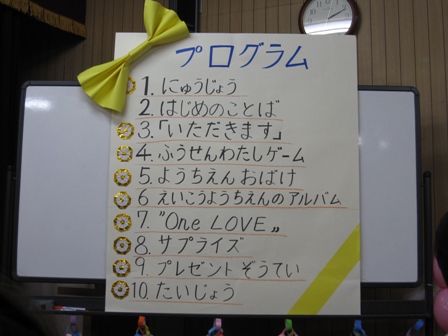 プログラム
1. にゅうじょう
2. はじめのことば
3.「いただきます」
4. ふうせんわたしゲーム
5. ようちえんおばけ
6 えいこうようちえんのアルバム
7. "One LOVE„
8. サプライズ
9. プレゼントぞうてい
10. たいじょう